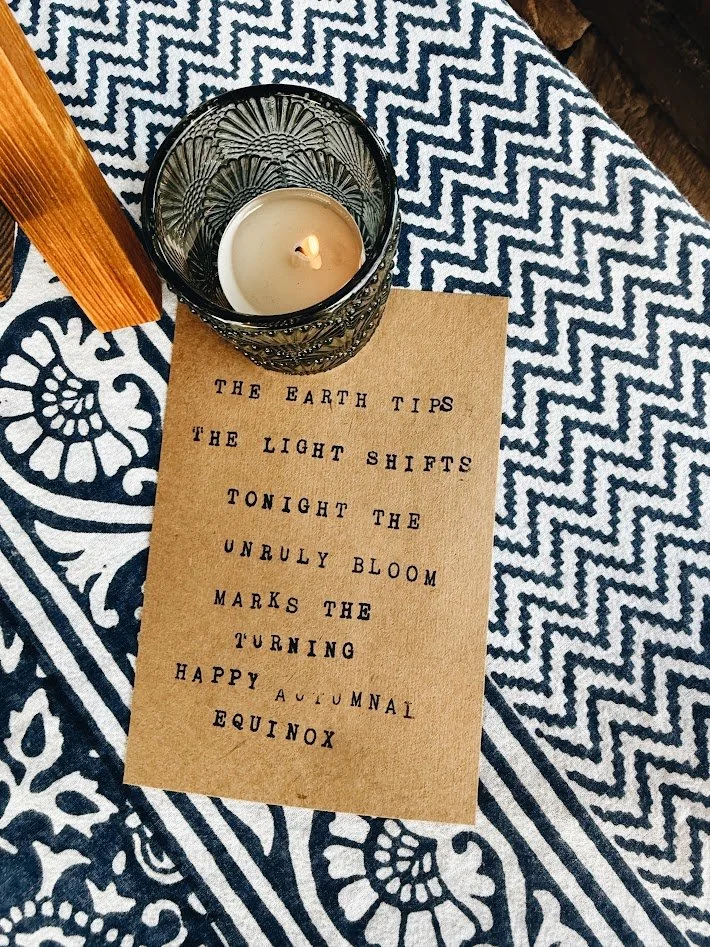 THE EARTH TIPS
THE LIGHT SHIFTS
TONIGHT THE
UNRULY BLOOM
MARKS THE
TURNING
HAPPY AUTUMNAL
EQUINOX